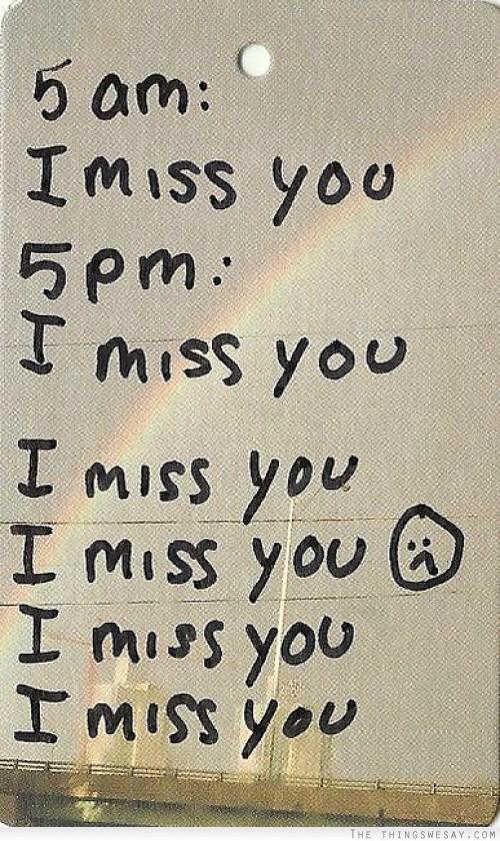 5 am:
I miss you
5pm:
I miss you
I miss you
I miss you
I miss you
I miss you
THE THINGSWESAY.COM